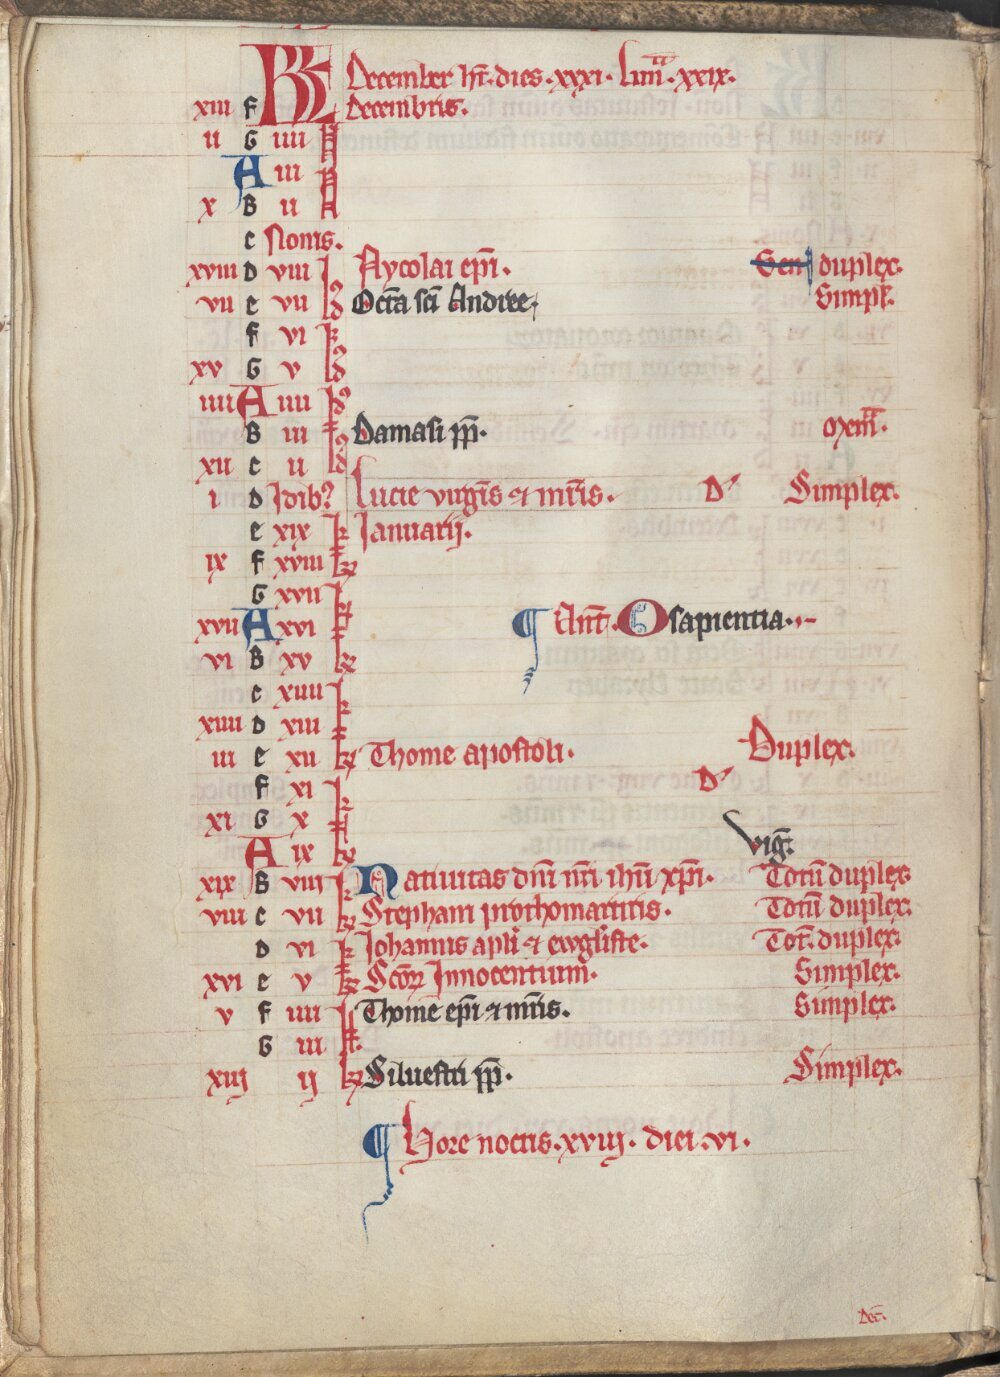 KL December ht̄. dies. xxxi. Lun̄. xxix.
xiii F Decembris.
ii G iiii N
A iii N
x B ii N
c Nonis.
xviii D viii Id9 Nycolai ep̄i. Sem duplex.
vii e vii Octā sc̄i Andree, Simpl̄.
f vi Id9
xv G v
iiii A iiii Id9
B iii Id9 Damasi pp̄. mem̄.
xii c ii
i D Idib9 Lucie virgīs et mr̄is. D Simplex.
e xix kl Januarij.
ix f xviii
G xvii kl
xvii A xvi ¶ Ant̄. O sapientia.
vi B xv
c xiiii kl
xiiii D xiii
iii e xii Thome apostoli. Duplex.
f xi kl D
xi G x
A ix viḡ.
xix B viii kl Natiuitas dn̄i nr̄i ihū xp̄i. Totū duplex
viii c vii Stephani prothomartiris. Totū duplex.
D vi kl Johannis apl̄i et ewgl̄iste. Tot̄. duplex.
xvi e v Sc̄oꝝ Innocentium. Simplex.
v f iiii kl Thome ep̄i et mr̄is. Simplex.
G iii
xiij ij kl Siluestri pp̄. Simplex.
¶ Hore noctis. xviij. diei. vi.
Dec̄.